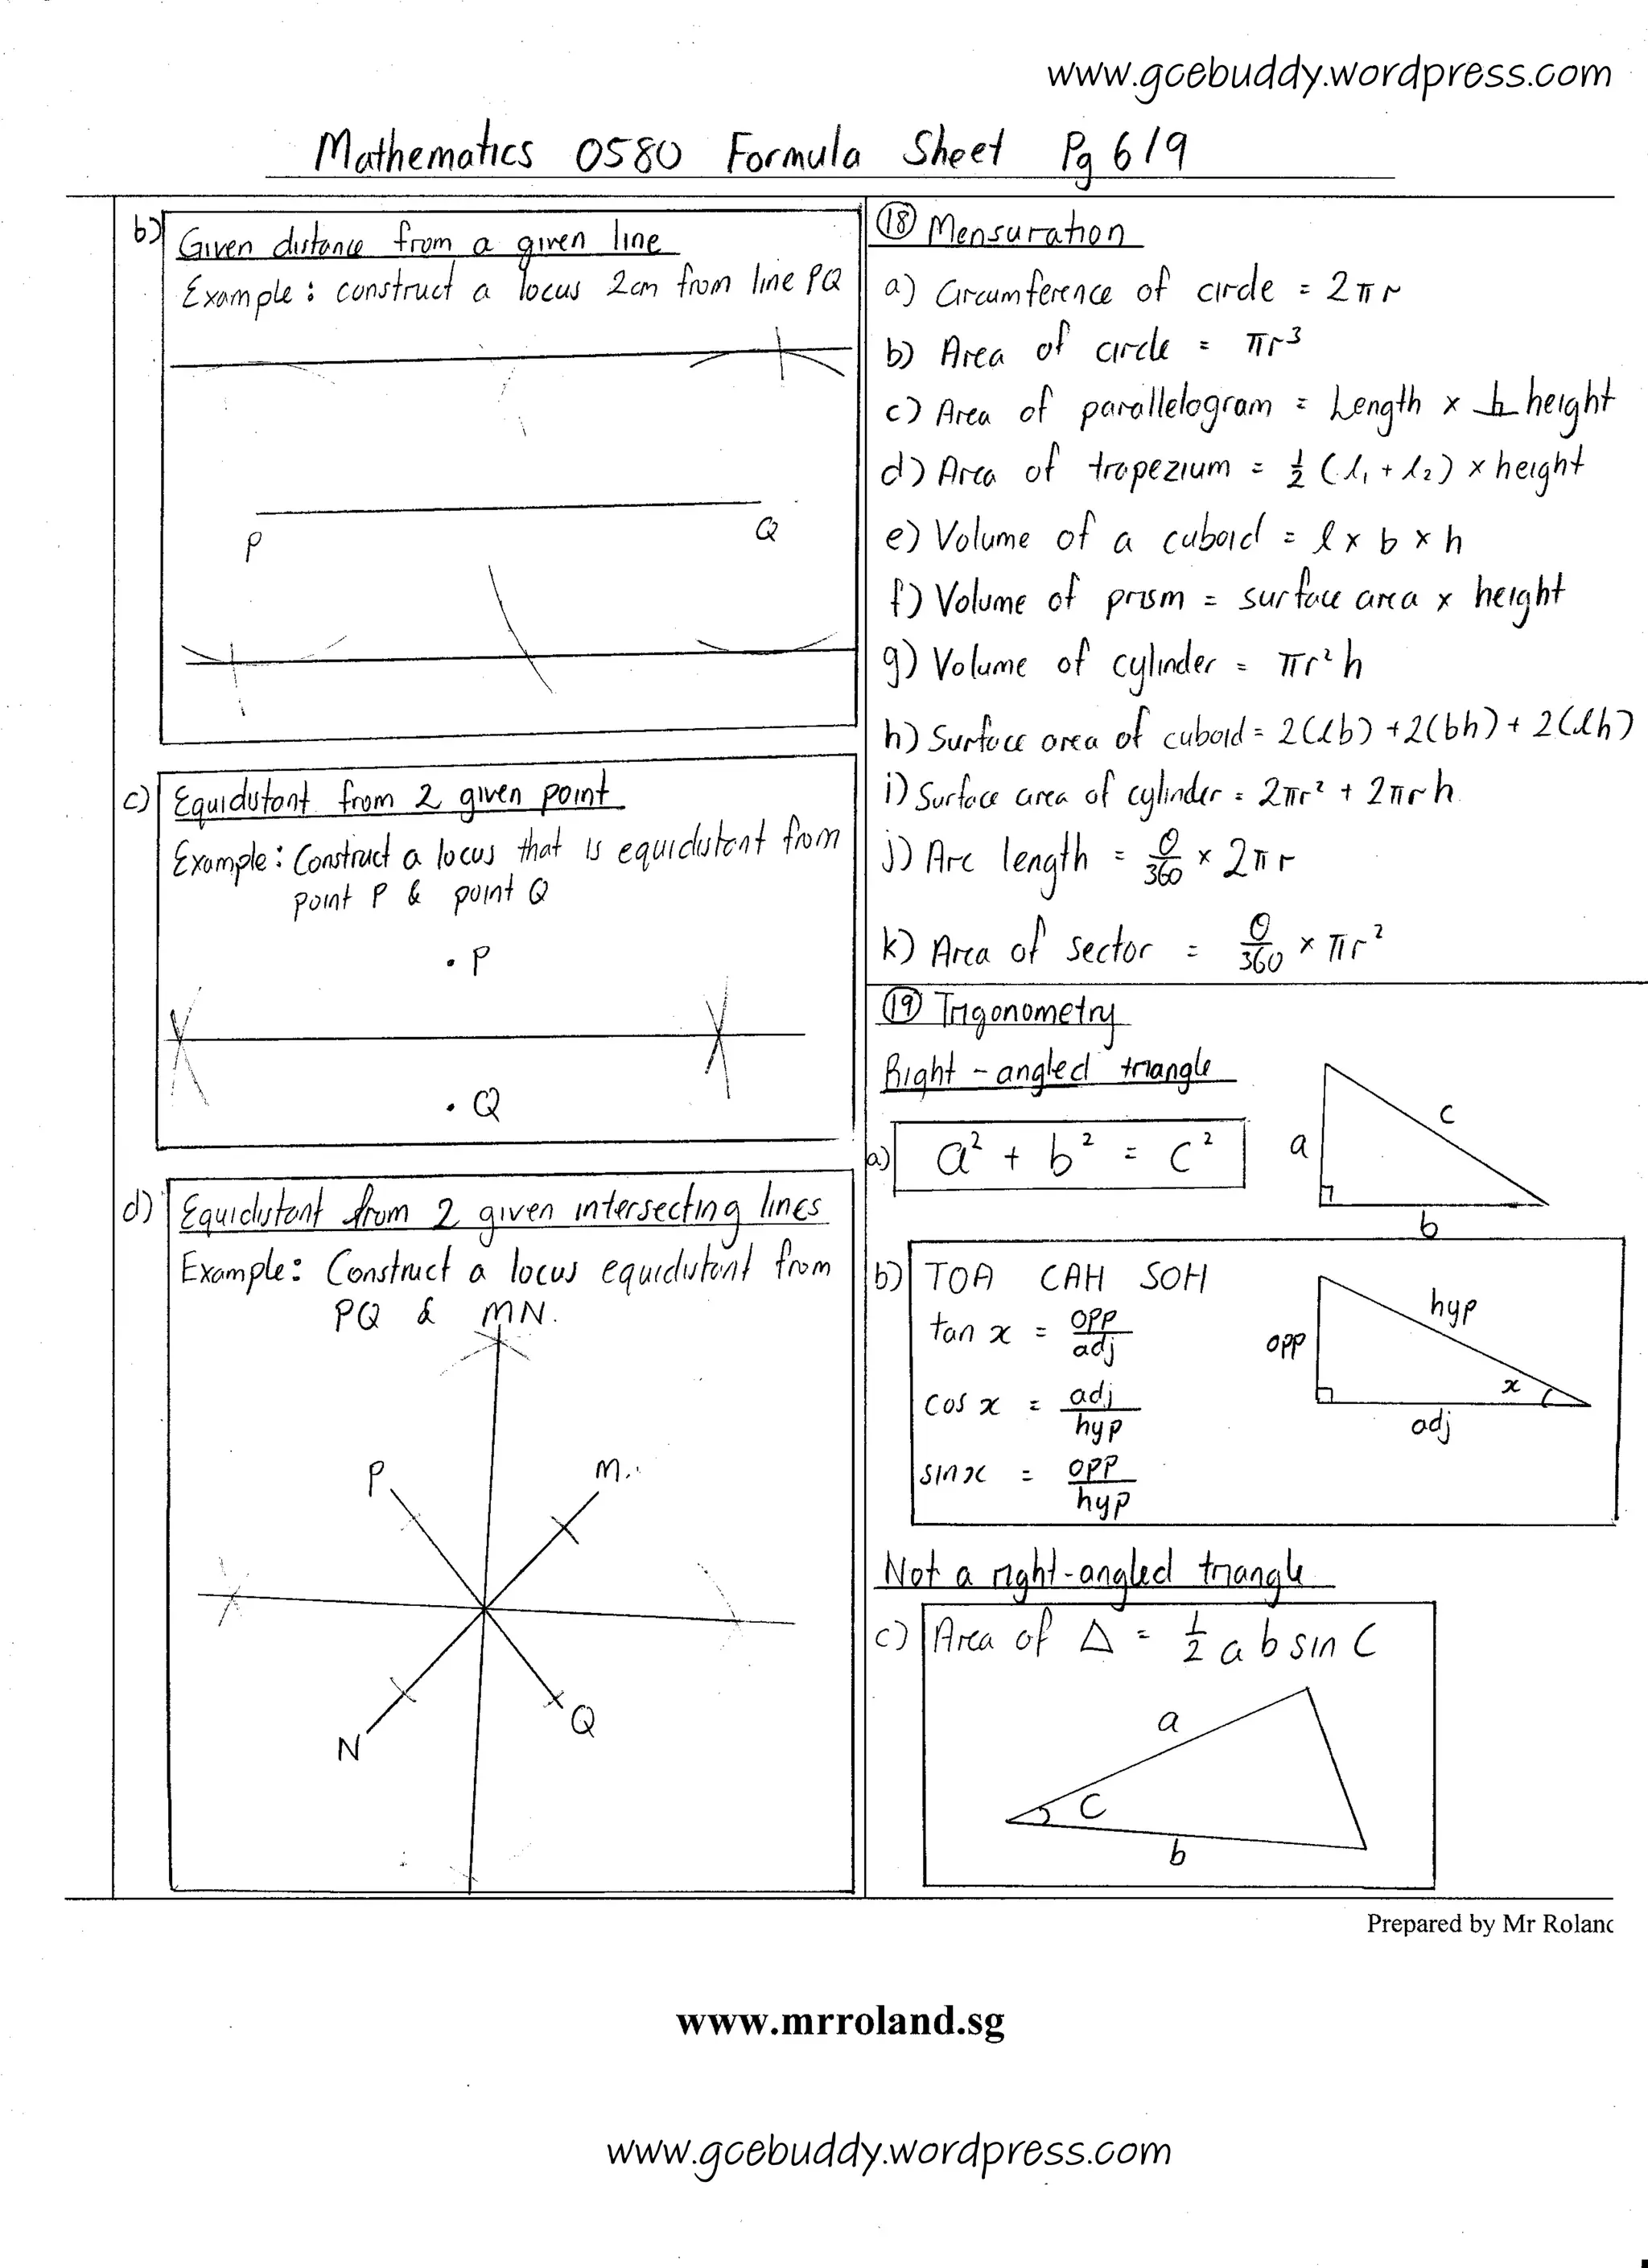 www.gcebuddy.wordpress.com
Mathematics 0580 Formula Sheet Pg 6/9
b) Given distance from a given line
Example : construct a locus 2cm from line PQ
P Q
c) Equidistant from 2 given point
Example : Construct a locus that is equidistant from
point P & point Q
. P
. Q
d) Equidistant from 2 given intersecting lines
Example: Construct a locus equidistant from
PQ & MN.
P M
N Q
⑱ Mensuration
a) Circumference of circle = 2πr
b) Area of circle = πr³
c) Area of parallelogram = Length x height
d) Area of trapezium = ½ (l₁ + l₂) x height
e) Volume of a cuboid = l x b x h
f) Volume of prism = surface area x height
g) Volume of cylinder = πr²h
h) Surface area of cuboid = 2(lb) + 2(bh) + 2(lh)
i) Surface area of cylinder = 2πr² + 2πrh
j) Arc length = θ/360 x 2πr
k) Area of sector = θ/360 x πr²
⑲ Trigonometry
Right-angled triangle
a) a² + b² = c²
a c
b
b) TOA CAH SOH
tan x = opp/adj
cos x = adj/hyp
sin x = opp/hyp
hyp
opp x
adj
Not a right-angled triangle
c) Area of Δ = ½ a b sin C
a
C
b
Prepared by Mr Rolan
www.mrroland.sg
www.gcebuddy.wordpress.com